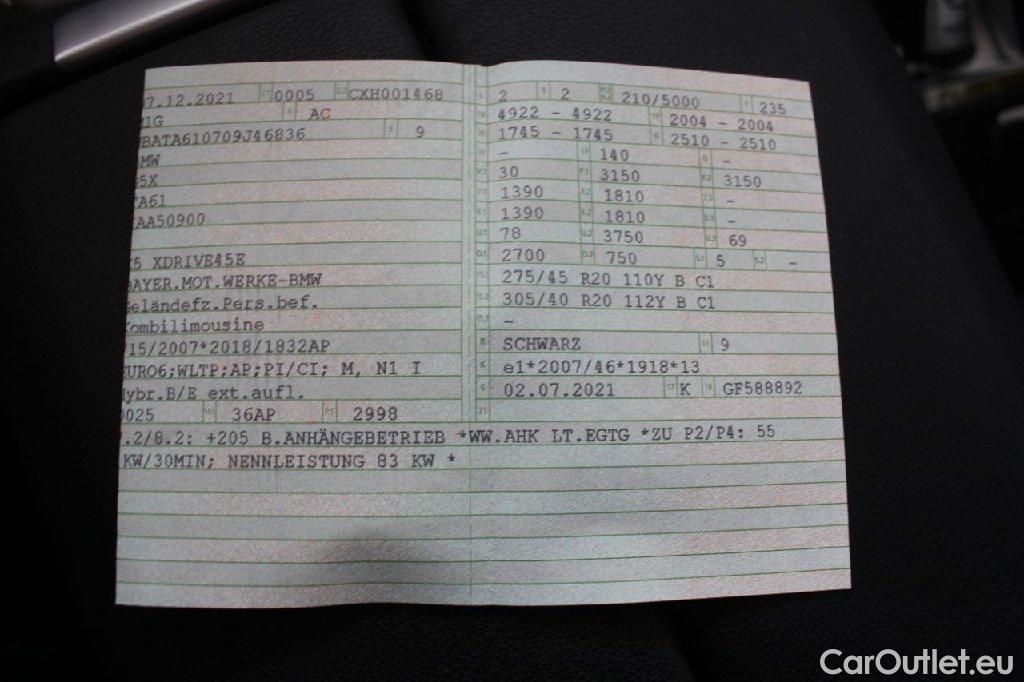 7.12.2021 0005 CXH001468
1G AC
BATA610709J46836 9
MW
5X
A61
AA50900
5 XDRIVE45E
BAYER.MOT.WERKE-BMW
Geländefz.Pers.bef.
Kombilimousine
715/2007*2018/1832AP
EURO6;WLTP;AP;PI/CI; M, N1 I
Hybr.B/E ext.aufl.
0025 36AP 2998
7.2/8.2: +205 B.ANHÄNGEBETRIEB *WW.AHK LT.EGTG *ZU P2/P4: 55
KW/30MIN; NENNLEISTUNG 83 KW *
2 2 210/5000 235
4922 - 4922 2004 - 2004
1745 - 1745 2510 - 2510
- 140 -
30 3150 3150
1390 1810 -
1390 1810 -
78 3750 69
2700 750 5 -
275/45 R20 110Y B C1
305/40 R20 112Y B C1
-
SCHWARZ 9
e1*2007/46*1918*13
02.07.2021 K GF588892
CarOutlet.eu